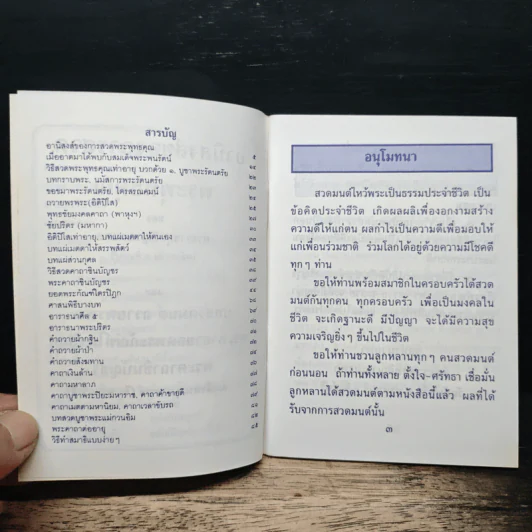 สารบัญ
อานิสงส์ของการสวดพระพุทธคุณ
เมื่ออาตมาได้พบกับสมเด็จพระพนรัตน์ ๕
วิธีสวดพระพุทธคุณเท่าอายุ บวกด้วย ๑, บูชาพระรัตนตรัย
บทกราบพระ, นมัสการพระรัตนตรัย
ขอขมาพระรัตนตรัย, ไตรสรณคมน์
ถวายพรพระ(อิติปิโส)
พุทธชัยมงคลคาถา (พาหุงฯ)
ชัยปริตร (มหากา)
อิติปิโสเท่าอายุ, บทแผ่เมตตาให้ตนเอง
บทแผ่เมตตาให้สรรพสัตว์
บทแผ่ส่วนกุศล
วิธีสวดคาถาชินบัญชร
พระคาถาชินบัญชร
ยอดพระกัณฑ์ไตรปิฎก
คาสนพิธีบางบท
อาราธนาศีล ๕
อาราธนาพระปริตร
คำถวายผ้ากฐิน
คำถวายผ้าป่า
คำถวายสังฆทาน
คาถาเงินล้าน
คาถามหาลาภ
คาถาบูชาพระปิยะมหาราช, คาถาค้าขายดี
คาถาเมตตามหานิยม, คาถาเวลาขับรถ
บทสวดบูชาพระแม่กวนอิม
พระคาถาต่ออายุ
วิธีทำสมาธิแบบง่ายๆ
อนุโมทนา
สวดมนต์ไหว้พระเป็นธรรมประจำชีวิต เป็น
ข้อคิดประจำชีวิต เกิดผลผลิเพื่องอกงามสร้าง
ความดีให้แก่ตน ผลกำไรเป็นความดีเพื่อมอบให้
แก่เพื่อนร่วมชาติ ร่วมโลกได้อยู่ด้วยความมีโชคดี
ทุกๆ ท่าน
ขอให้ท่านพร้อมสมาชิกในครอบครัวได้สวด
มนต์กันทุกคน ทุกครอบครัว เพื่อเป็นมงคลใน
ชีวิต จะเกิดฐานะดี มีปัญญา จะได้มีความสุข
ความเจริญยิ่งๆ ขึ้นไปในชีวิต
ขอให้ท่านชวนลูกหลานทุกๆ คนสวดมนต์
ก่อนนอน ถ้าท่านทั้งหลาย ตั้งใจ-ศรัทธา เชื่อมั่น
ลูกหลานได้สวดมนต์ตามหนังสือนี้แล้ว ผลที่ได้
รับจากการสวดมนต์นั้น
๓